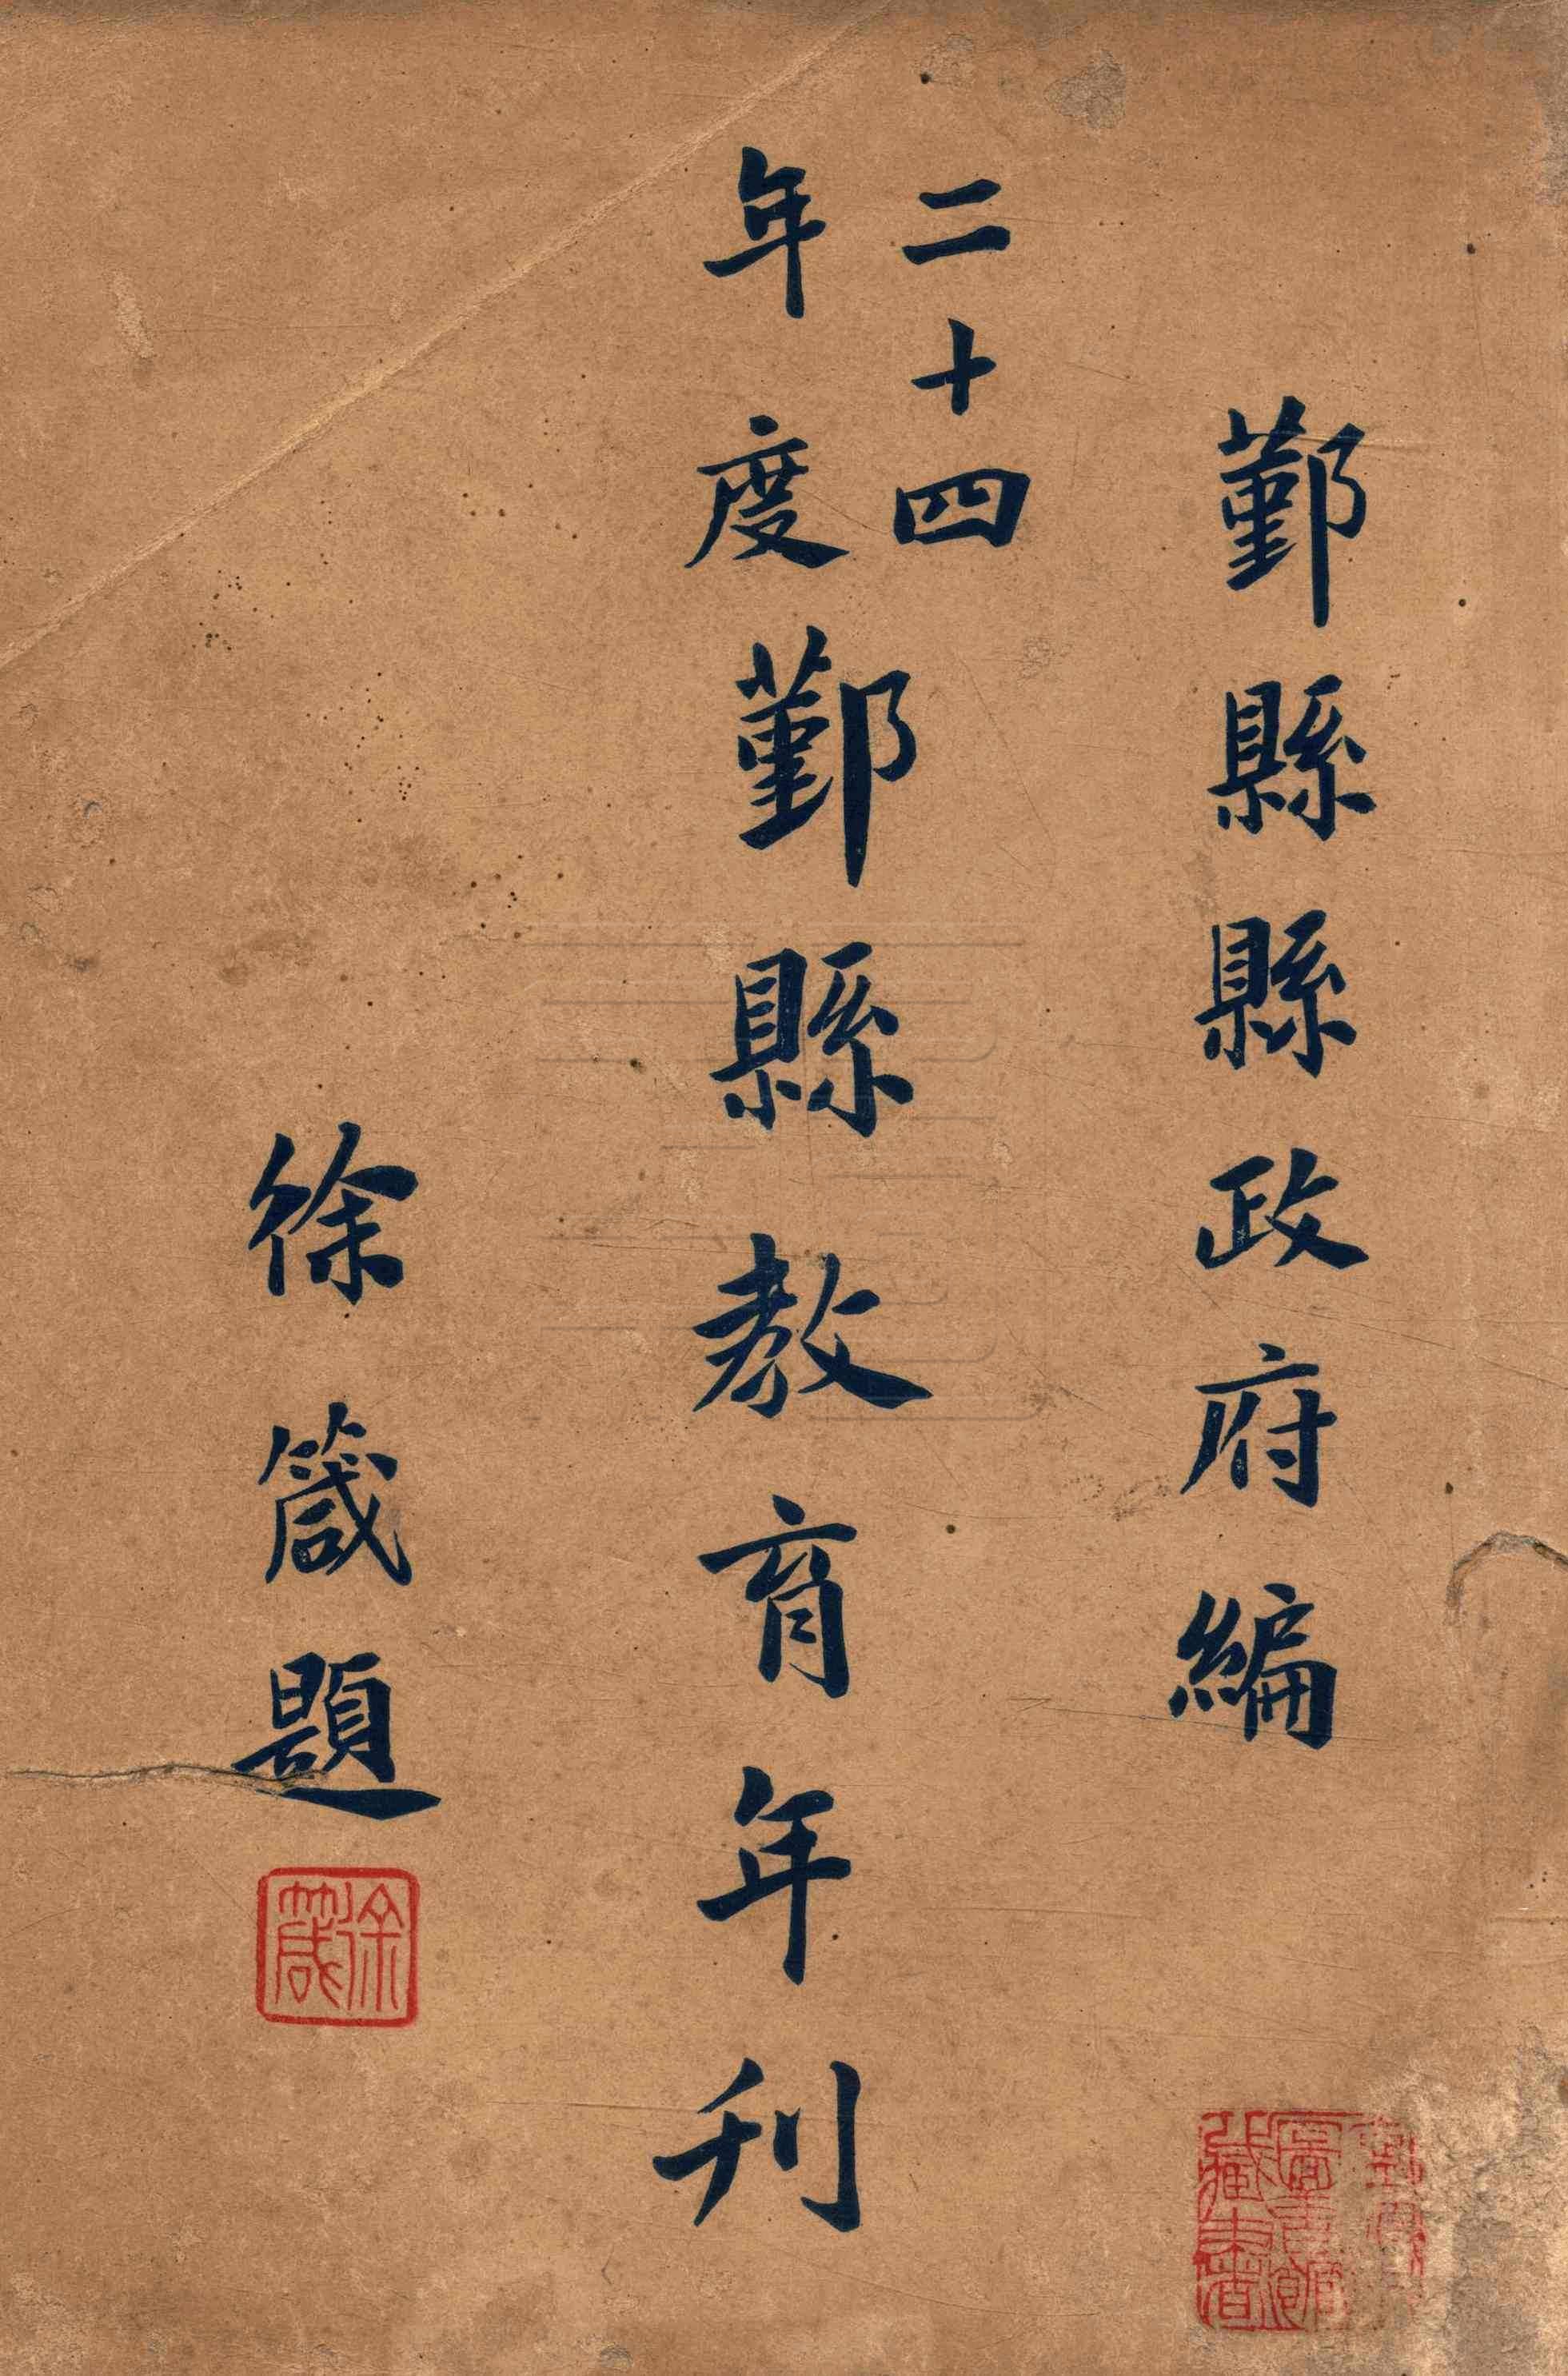 鄞縣縣政府編
二十四
年度鄞縣教育年刊
徐箴題
徐箴
圖書館
藏書